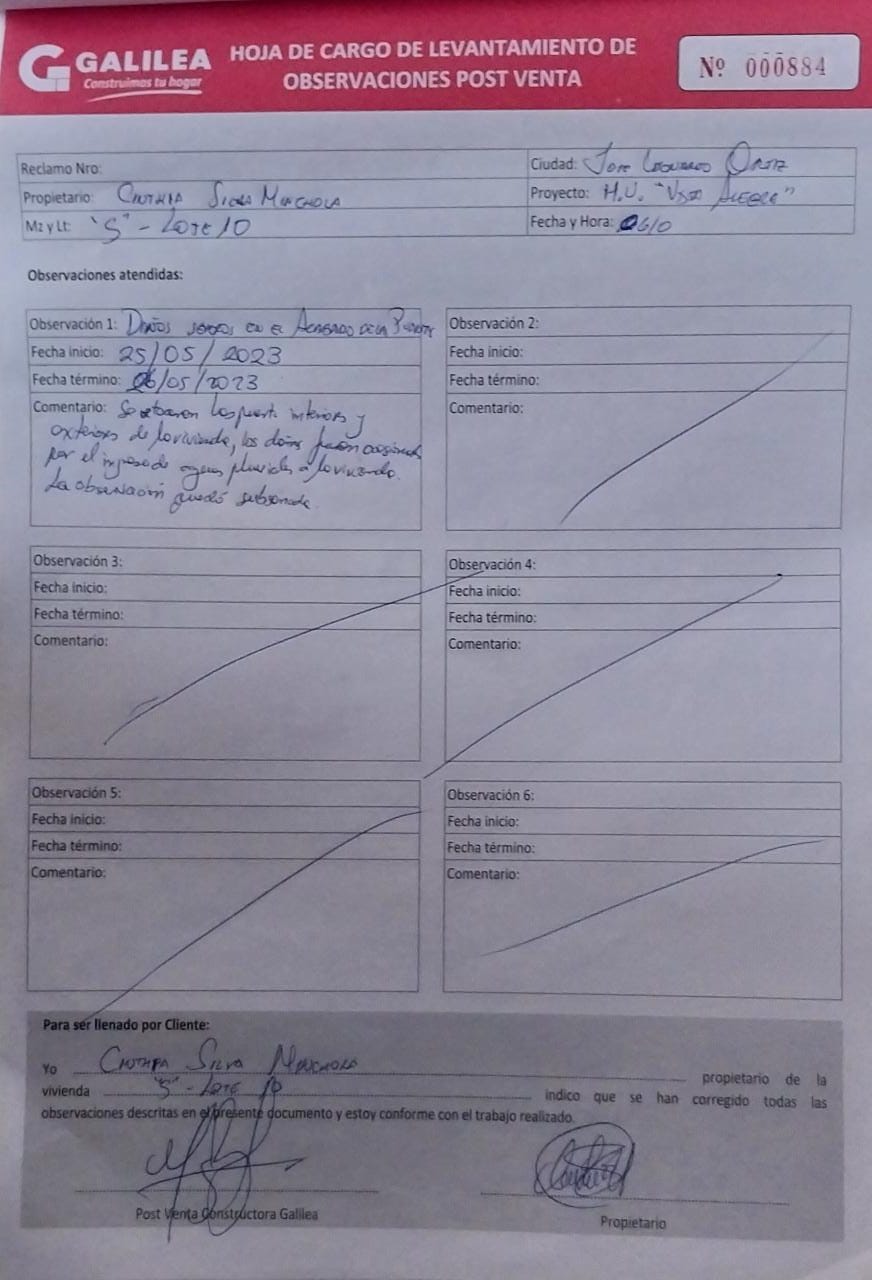 GALILEA
Construimos tu hogar
HOJA DE CARGO DE LEVANTAMIENTO DE
OBSERVACIONES POST VENTA
Nº 000884
Reclamo Nro:
Ciudad: Jose Leonardo Ortiz
Propietario: Cinthia Silva Menchola
Proyecto: H.U. "Vista Alegre"
Mz y Lt: "S" - Lote 10
Fecha y Hora: 06/0
Observaciones atendidas:
Observación 1: Daños en el Acabado de la
Fecha inicio: 25/05/2023
Fecha término: 06/05/2023
Comentario: Se interiores y
exteriores de la vivienda, los daños fueron ocasionados
por el ingreso de aguas pluviales a la vivienda.
La observación quedó subsanada.
Observación 2:
Fecha inicio:
Fecha término:
Comentario:
Observación 3:
Fecha inicio:
Fecha término:
Comentario:
Observación 4:
Fecha inicio:
Fecha término:
Comentario:
Observación 5:
Fecha inicio:
Fecha término:
Comentario:
Observación 6:
Fecha inicio:
Fecha término:
Comentario:
Para ser llenado por Cliente:
Yo Cinthia Silva Menchola propietario de la
vivienda "S" - Lote 10 indico que se han corregido todas las
observaciones descritas en el presente documento y estoy conforme con el trabajo realizado.
Post Venta Constructora Galilea
Propietario